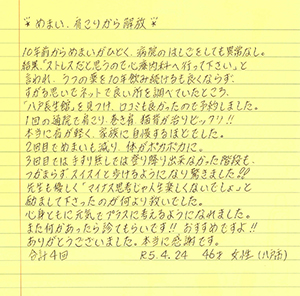 ＊めまい、肩こりから解放＊
10年前からめまいがひどく、病院のはしごをしても異常なし。
結果、「ストレスだと思うので心療内科へ行って下さい」と
言われ、うつの薬を10年飲み続けるも良くならず、
すがる思いでネットで良い所を調べていたところ、
「八戸長生館」を見つけ、口コミも良かったので予約しました。
1回の施術で肩こり、巻き肩、猫背が治りビックリ!!
本当に肩が軽く、家族に自慢するほどでした。
2回目でめまいも減り、体がポカポカに。
3回目では手すり無しでは登り降り出来なかった階段も、
つかまらずスイスイと歩けるようになり驚きました??
先生も優しく「マイナス思考じゃ人生楽しくないでしょ」と
励まして下さったのが何より救いでした。
心身ともに元気でプラスに考えるようになれました。
また何かあったら診てもらいです!! おすすめですよ!!
ありがとうございました。本当に感謝です。
合計4回 R5.4.24 46才 女性(八戸市)